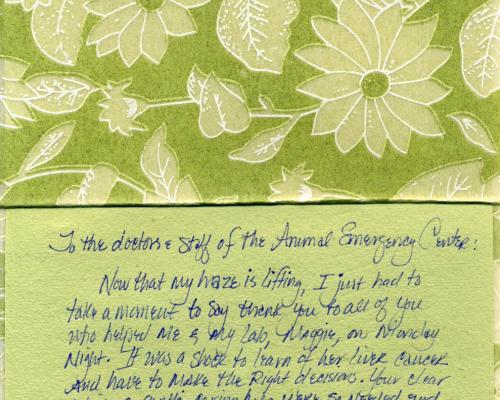 To the doctors & Staff of the Animal Emergency Center:
Now that my haze is lifting, I just had to
take a moment to say thank you to all of you
who helped me & my lab, Maggie, on Monday
Night. It was a shock to learn of her liver cancer
And have to make the Right decision. Your clear
were so needed and